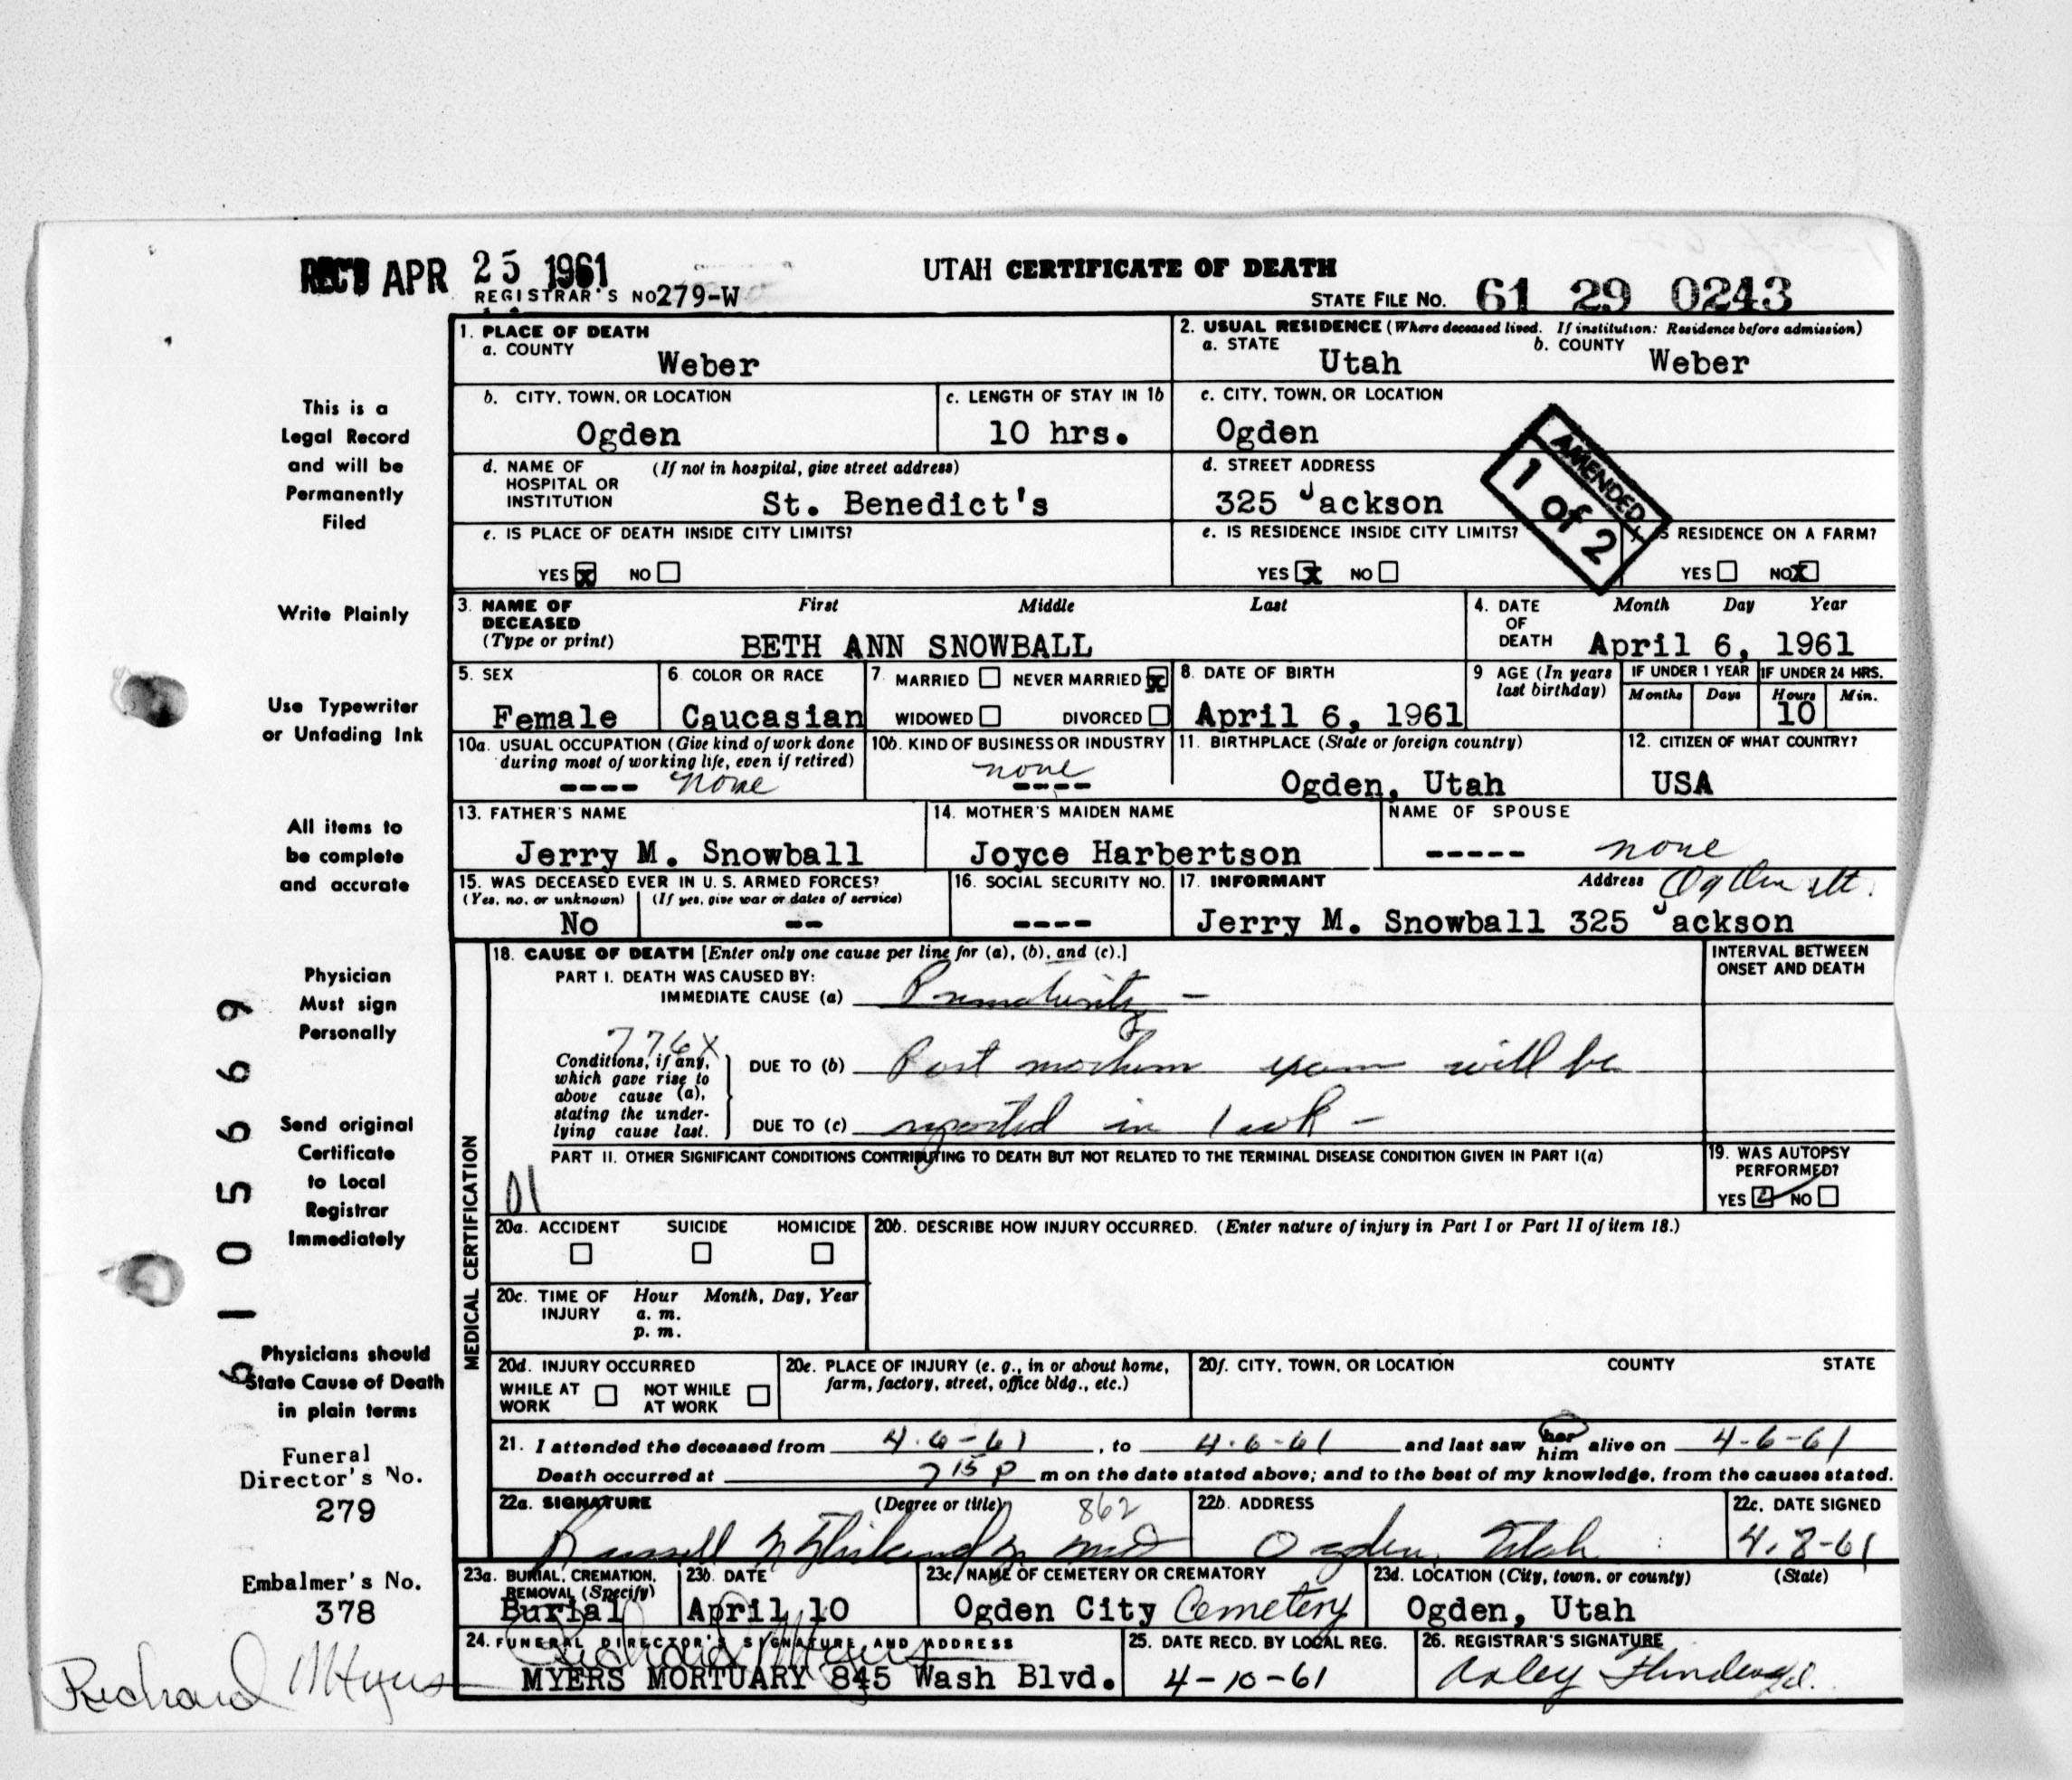 REC'D APR 25 1961
REGISTRAR'S NO 279-W
UTAH CERTIFICATE OF DEATH
STATE FILE NO. 61 29 0243
1. PLACE OF DEATH
a. COUNTY
Weber
2. USUAL RESIDENCE (Where deceased lived. If institution: Residence before admission)
a. STATE
Utah
b. COUNTY
Weber
This is a
Legal Record
and will be
Permanently
Filed
b. CITY, TOWN, OR LOCATION
Ogden
c. LENGTH OF STAY IN 1b
10 hrs.
c. CITY, TOWN, OR LOCATION
Ogden
d. NAME OF HOSPITAL OR INSTITUTION
(If not in hospital, give street address)
St. Benedict's
d. STREET ADDRESS
325 Jackson
AMENDED
1 of 2
e. IS PLACE OF DEATH INSIDE CITY LIMITS?
YES x NO
e. IS RESIDENCE INSIDE CITY LIMITS?
YES x NO
RESIDENCE ON A FARM?
YES NO x
Write Plainly
3. NAME OF DECEASED
(Type or print)
First Middle Last
BETH ANN SNOWBALL
4. DATE OF DEATH
Month Day Year
April 6, 1961
Use Typewriter
or Unfading Ink
5. SEX
Female
6. COLOR OR RACE
Caucasian
7. MARRIED NEVER MARRIED x
WIDOWED DIVORCED
8. DATE OF BIRTH
April 6, 1961
9 AGE (In years last birthday)
IF UNDER 1 YEAR
Months Days
IF UNDER 24 HRS.
Hours Min.
10
10a. USUAL OCCUPATION (Give kind of work done during most of working life, even if retired)
---- none
10b. KIND OF BUSINESS OR INDUSTRY
none
----
11. BIRTHPLACE (State or foreign country)
Ogden, Utah
12. CITIZEN OF WHAT COUNTRY?
USA
All items to
be complete
and accurate
13. FATHER'S NAME
Jerry M. Snowball
14. MOTHER'S MAIDEN NAME
Joyce Harbertson
NAME OF SPOUSE
----- none
15. WAS DECEASED EVER IN U. S. ARMED FORCES?
(Yes, no, or unknown) (If yes, give war or dates of service)
No --
16. SOCIAL SECURITY NO.
----
17. INFORMANT
Address Ogden Ut.
Jerry M. Snowball 325 Jackson
Physician
Must sign
Personally
MEDICAL CERTIFICATION
18. CAUSE OF DEATH [Enter only one cause per line for (a), (b), and (c).]
PART I. DEATH WAS CAUSED BY:
IMMEDIATE CAUSE (a) Prematurity -
INTERVAL BETWEEN ONSET AND DEATH
776X
Conditions, if any, which gave rise to above cause (a), stating the underlying cause last.
DUE TO (b) Post mortem exam will be
DUE TO (c) reported in 1 wk -
PART II. OTHER SIGNIFICANT CONDITIONS CONTRIBUTING TO DEATH BUT NOT RELATED TO THE TERMINAL DISEASE CONDITION GIVEN IN PART I(a)
01
19. WAS AUTOPSY PERFORMED?
YES NO
Send original
Certificate
to Local
Registrar
Immediately
6105669
20a. ACCIDENT SUICIDE HOMICIDE
20b. DESCRIBE HOW INJURY OCCURRED. (Enter nature of injury in Part I or Part II of item 18.)
20c. TIME OF INJURY
Hour Month, Day, Year
a. m.
p. m.
Physicians should
State Cause of Death
in plain terms
20d. INJURY OCCURRED
WHILE AT WORK NOT WHILE AT WORK
20e. PLACE OF INJURY (e. g., in or about home, farm, factory, street, office bldg., etc.)
20f. CITY, TOWN, OR LOCATION COUNTY STATE
21. I attended the deceased from 4-6-61, to 4-6-61 and last saw her him alive on 4-6-61
Death occurred at 7 15 P m on the date stated above; and to the best of my knowledge, from the causes stated.
22a. SIGNATURE (Degree or title)
862
Russell MD
22b. ADDRESS
Ogden, Utah
22c. DATE SIGNED
4-8-61
Funeral
Director's No.
279
Embalmer's No.
378
23a. BURIAL, CREMATION, REMOVAL (Specify)
Burial
23b. DATE
April 10
23c. NAME OF CEMETERY OR CREMATORY
Ogden City Cemetery
23d. LOCATION (City, town, or county) (State)
Ogden, Utah
24. FUNERAL DIRECTOR'S SIGNATURE AND ADDRESS
Richard Myers
MYERS MORTUARY 845 Wash Blvd.
25. DATE RECD. BY LOCAL REG.
4-10-61
26. REGISTRAR'S SIGNATURE
Richard Myers